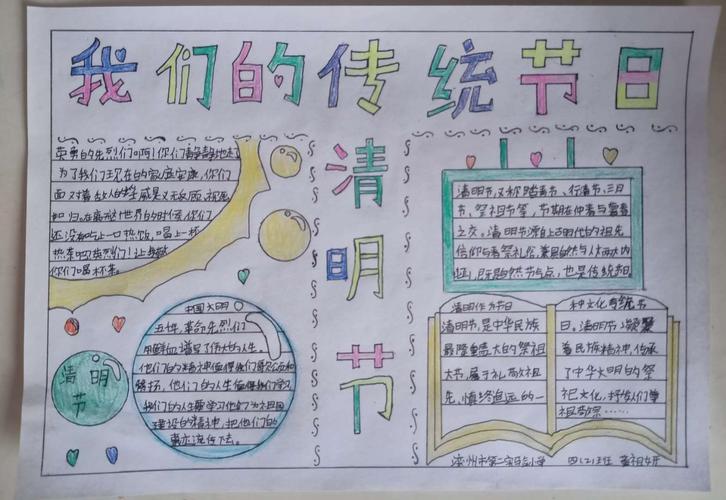 我们的传统节日
清明节
英勇的先烈们啊!你们静静地走了
为了我们现在的家庭安康,你们
面对着敌人的威是义无反顾,视死
如归。在离开世界的时候,你们
还没有吃上一口热饭,喝上一杯
热茶吧英烈们!让我
你们喝杯茶。
清明节,又称踏青节、行清节、三月
节、祭祖节等,节期在仲春与暮春
之交。清明节源自上古时代的祖先
信仰与春祭礼俗,兼具自然与人文两大内
涵,既是自然节气点,也是传统节日
中国文明
五十年,革命先烈们
用鲜血谱写了伟大的人生。
他们的精神值得我们
扬,他们的人生值得我们学习
我们的人要学习他们为祖国
建设的精神,把他们的
事亦流传下去。
清明
节
清明作为节日
清明节,是中华民族
最隆重盛大的祭祖
大节,属于礼敬祖
先、慎终追远的一
种文化传统节
日,清明节凝聚
着民族精神,传承
了中华文明的祭
祀文化,抒发人们尊
祖敬宗……
滦州市第二实验小学 四(2)班